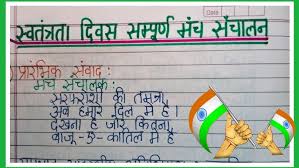 Date
स्वतंत्रता दिवस सम्पूर्ण मंच संचालन
प्रारंभिक संवाद:
मंच संचालक:
सरफरोशी की तमन्ना,
अब हमारे दिल में है।
देखना है जोर कितना,
बाजू-ए-कातिल में है